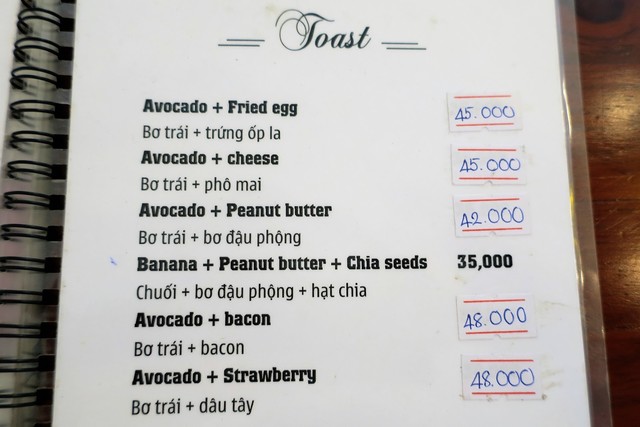 Toast
Avocado + Fried egg 45.000
Bơ trái + trứng ốp la
Avocado + cheese 45.000
Bơ trái + phô mai
Avocado + Peanut butter 42.000
Bơ trái + bơ đậu phộng
Banana + Peanut butter + Chia seeds 35,000
Chuối + bơ đậu phộng + hạt chia
Avocado + bacon 48.000
Bơ trái + bacon
Avocado + Strawberry 48.000
Bơ trái + dâu tây